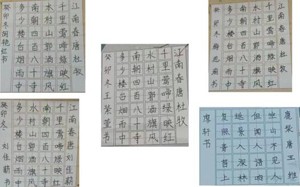 江南春唐杜牧
千里莺啼绿映红
水村山郭酒旗风
南朝四百八十寺
多少楼台烟雨中
癸卯冬
江南春唐杜牧
千里莺啼绿映红
水村山郭酒旗风
南朝四百八十寺
多少楼台烟雨中
癸卯冬
江南春唐杜牧
千里莺啼绿映红
水村山郭酒旗风
南朝四百八十寺
多少楼台烟雨中
癸卯冬
江南春唐杜牧
千里莺啼绿映红
水村山郭酒旗风
南朝四百八十寺
多少楼台烟雨中
癸卯冬
鹿柴唐王维
空山不见人
但闻人语响
返景入深林
复照青苔上